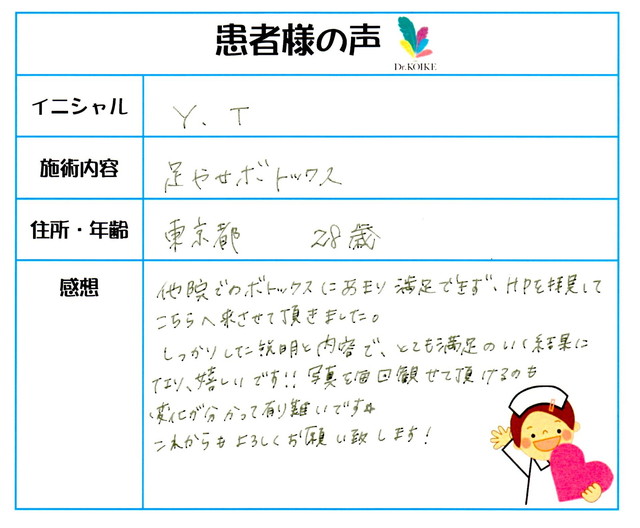 患者様の声
Dr.KOIKE
イニシャル
Y. T
施術内容
足やせボトックス
住所・年齢
東京都 28歳
感想
他院でのボトックスにあまり満足できず、HPを拝見して
こちらへ来させて頂きました。
しっかりした説明と内容で、とても満足のいく結果に
なり、嬉しいです!! 写真を毎回観せて頂けるのも
変化が分かって有り難いです☆
これからもよろしくお願い致します!